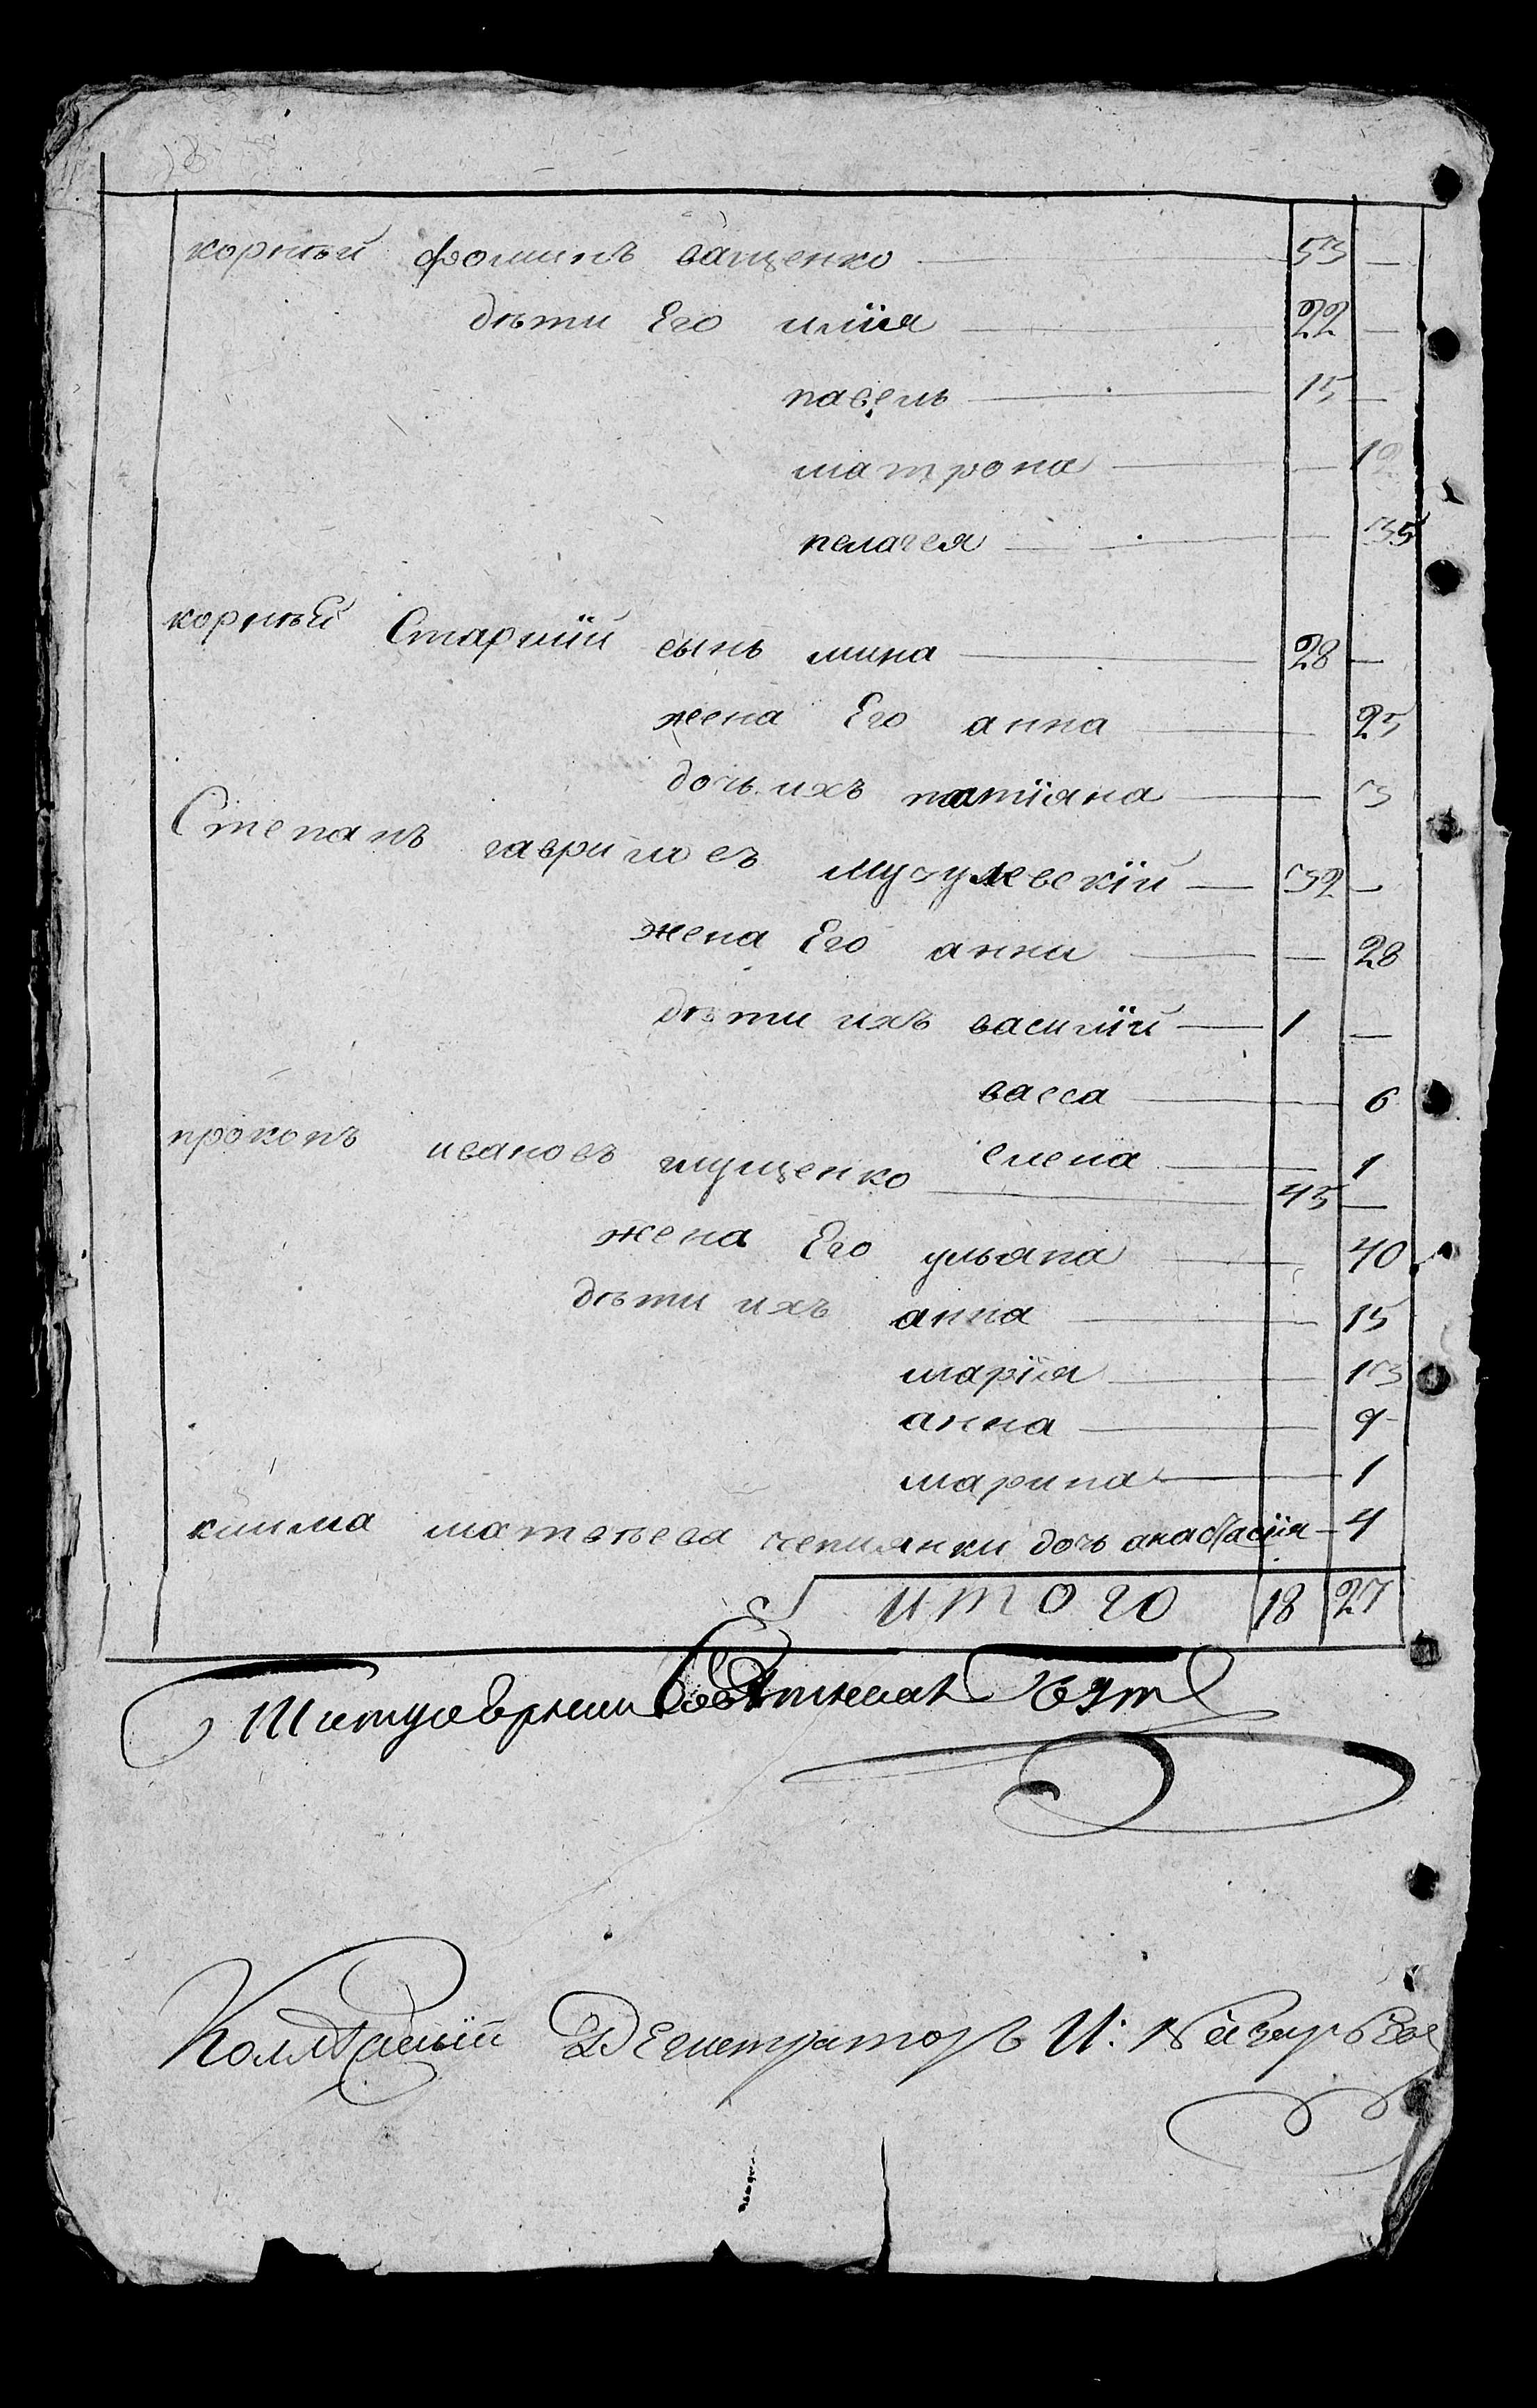 корнѣй фоминъ ващенко — 53 —
дѣти Его илїя — 22 —
павелъ — 15 —
матрона — 12
пелагея — 35
корнѣй Старшїй сынъ мина — 28 —
жена Его анна — 25
дочь ихъ татїяна — 3
Степанъ гавриловъ — 32 —
жена Его анна — — 28
дѣти ихъ василїй — 1 —
васса — 6
елена — 1
прокопъ ивановъ глущенко — 45 —
жена Его ульяна — 40
дѣти ихъ анна — 15
марїя — 13
анна — 9
марина — 1
клима матвѣева чеплянки дочь анастасїя — 4
итого 18 27
Титулярный Советникъ
Коллежскїй Регистраторъ И: